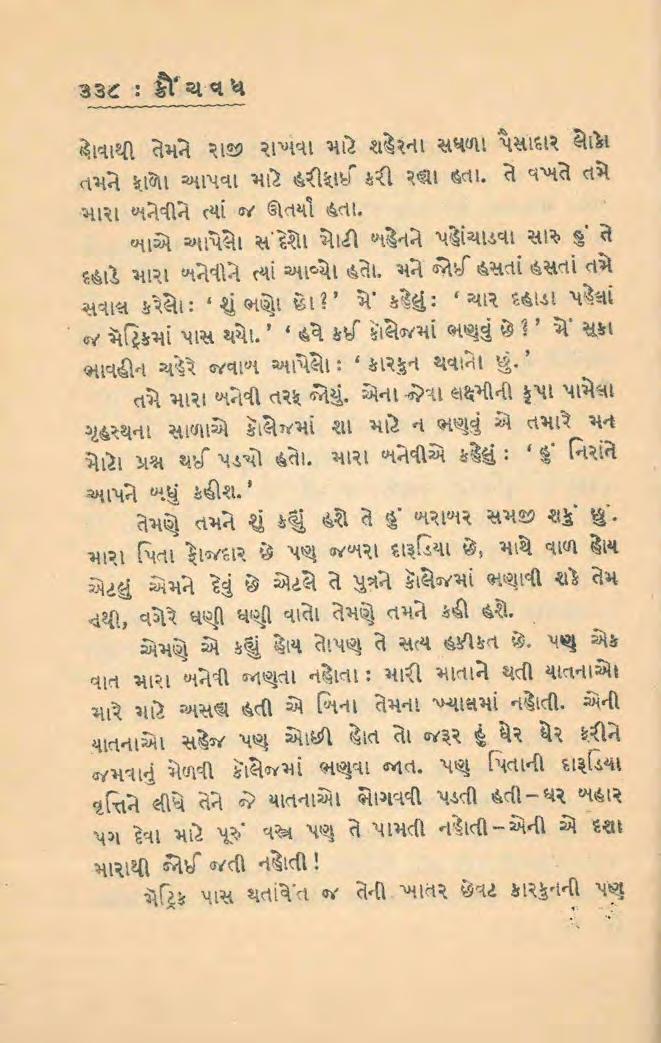 ૩૩૮ : ક્રૌંચવધ
હોવાથી તેમને રાજી રાખવા માટે શહેરના સઘળા પૈસાદાર લોકો
તમને ફાળો આપવા માટે હરીફાઈ કરી રહ્યા હતા. તે વખતે તમે
મારા બનેવીને ત્યાં જ ઊતર્યા હતા.
બાએ આપેલો સંદેશો મોટી બહેનને પહોંચાડવા સારુ હું તે
દહાડે મારા બનેવીને ત્યાં આવ્યો હતો. મને જોઈ હસતાં હસતાં તમે
સવાલ કરેલો: ‘ શું ભણો છો ? ’ મેં કહેલું: ‘ ચાર દહાડા પહેલાં
જ મૅટ્રિકમાં પાસ થયો. ’ ‘ હવે કઈ કૉલેજમાં ભણવું છે ? ’ મેં સૂકા
ભાવહીન ચહેરે જવાબ આપેલો : ‘ કારકુન થવાનો છું. ’
તમે મારા બનેવી તરફ જોયું. એના જેવા લક્ષ્મીની કૃપા પામેલા
ગૃહસ્થના સાળાએ કૉલેજમાં શા માટે ન ભણવું એ તમારે મન
મોટો પ્રશ્ન થઈ પડ્યો હતો. મારા બનેવીએ કહેલું : ‘ હું નિરાંતે
આપને બધું કહીશ. ’
તેમણે તમને શું કહ્યું હશે તે હું બરાબર સમજી શકું છું.
મારા પિતા ફોજદાર છે પણ જબરા દારૂડિયા છે, માથે વાળ હોય
એટલું એમને દેવું છે એટલે તે પુત્રને કૉલેજમાં ભણાવી શકે તેમ
નથી, વગેરે ઘણી ઘણી વાતો તેમણે તમને કહી હશે.
એમણે એ કહ્યું હોય તોપણ તે સત્ય હકીકત છે. પણ એક
વાત મારા બનેવી જાણતા નહોતા : મારી માતાને થતી યાતનાઓ
મારે માટે અસહ્ય હતી એ બિના તેમના ખ્યાલમાં નહોતી. એની
યાતનાઓ સહેજ પણ ઓછી હોત તો જરૂર હું ઘેર ઘેર ફરીને
જમવાનું મેળવી કૉલેજમાં ભણવા જાત. પણ પિતાની દારૂડિયા
વૃત્તિને લીધે તેને જે યાતનાઓ ભોગવવી પડતી હતી – ઘર બહાર
પગ દેવા માટે પૂરું વસ્ત્ર પણ તે પામતી નહોતી – એની એ દશા
મારાથી જોઈ જતી નહોતી !
મૅટ્રિક પાસ થતાંવેંત જ તેની ખાતર છેવટ કારકુનની પણ